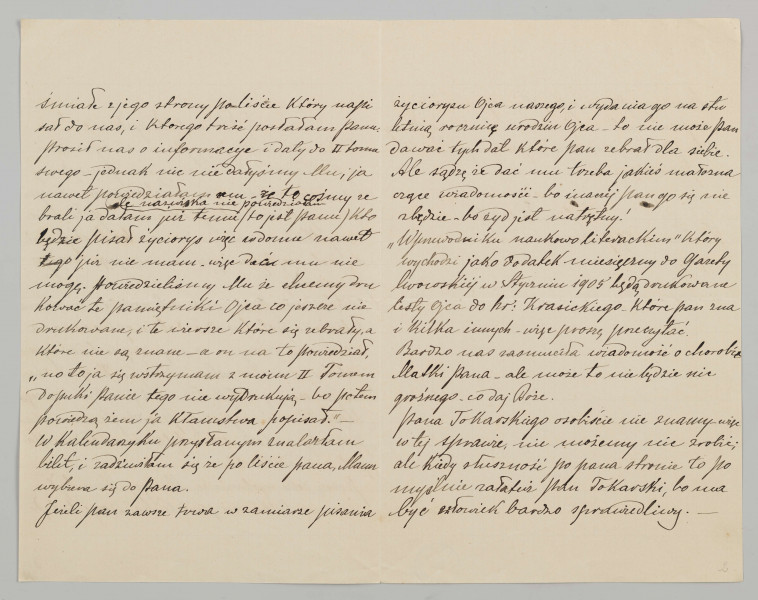 śmiałe z jego strony po liście który napi
sał do nas, i którego treść posłałam Panu.
Prosił nas o informacye i daty do II tomu
swego – jednak nic nie dałyśmy Mu, ja
nawet powiedziałam mu – że te cośmy ze
ale nazwiska nie powiedziałam
brali ja dałam już temu (to jest Panu) kto
będzie pisał życiorys więc rodowodu nawet
tego już nie mam – więc dać mu nie
mogę. Powiedziełiśmy Mu że chcemy dru
kować te pamiętniki Ojca co jeszcze nie
drukowane, i te wiersze które się zebrały, a
które nie są znane – a on na to powiedział,
"no to ja się wstrzymam z moim II Tomem
dopuki Panie tego nie wydrukują – bo potem
powiedzą żem ja kłamstwa popisał." –
W Kalendarzyku przysłanym znalazłam
bilet, i zadziwiłam się że po liście Pana, Mann
wybiera się do Pana.
Jeżeli pan zawsze trwa w zamiarze pisania
życiorysu Ojca naszego, i wydania go na stu
letnią rocznicę urodzin Ojca – to nie może Pan
dawać tych dat które pan zebrał dla siebie.
Ale sądzę że dać mu trzeba jakieś mało zna
czące wiadomości – bo inaczej pan go się nie
zbędzie – bo żyd jest natrętny!
"W przewodniku naukowo literackim" który
wychodzi jako dodatek miesięczny do Gazety
lwowskiej w Styczniu 1905 będą drukowane
listy Ojca do hr: Krasickiego – które pan zna
i kilka innych – więc proszę przeczytać.
Bardzo nas zasmuciła wiadomość o chorobie
Matki Pana – ale może to nie będzie nic
groźnego – co daj Boże.
Pana Tokarskiego osobiście nie znamy – więc
w tej sprawie, nic możemy nic zrobić;
ale kiedy słuszność po pana stronie to po
myślnie załatwi Pan Tokarski, bo ma
być człowiek bardzo sprawiedliwy. –
2